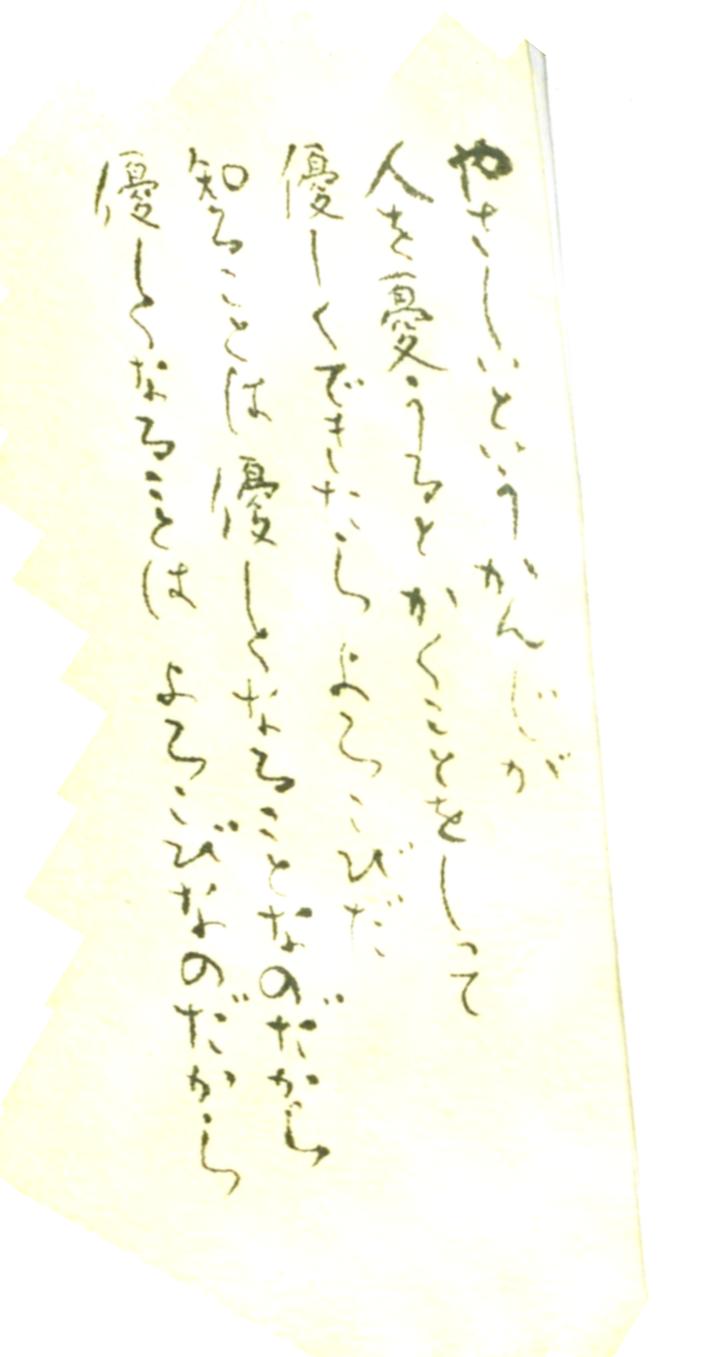 やさしいというかんじが
人を憂うるとかくことをしって
優しくできたらよろこびだ
知ることは優しくなることなのだから
優しくなることはよろこびなのだから